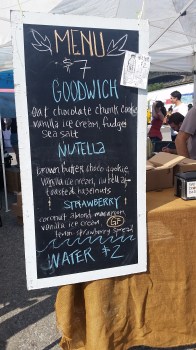 MENU
$7
GOODWICH
Oat chocolate chunk cookie
vanilla ice cream, fudge,
sea salt
NUTELLA
brown butter choco cookie,
vanilla ice cream, nutella,
toasted hazelnuts
STRAWBERRY!
coconut almond macaroon
vanilla ice cream, GF
strawberry spread
WATER $2